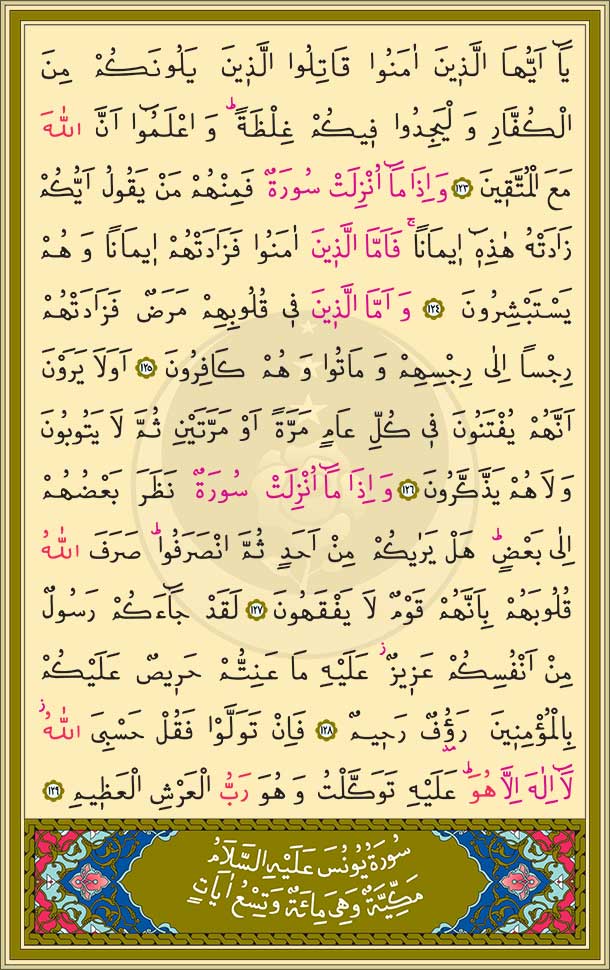 يَٓا اَيُّهَا الَّذ۪ينَ اٰمَنُوا قَاتِلُوا الَّذ۪ينَ يَلُونَكُمْ مِنَ
الْكُفَّارِ وَ لْيَجِدُوا ف۪يكُمْ غِلْظَةًۜ وَ اعْلَمُٓوا اَنَّ اللّٰهَ
مَعَ الْمُتَّق۪ينَ ﴿١٢٣﴾ وَ اِذَا مَٓا اُنْزِلَتْ سُورَةٌ فَمِنْهُمْ مَنْ يَقُولُ اَيُّكُمْ
زَادَتْهُ هٰذِه۪ٓ ا۪يمَانًاۚ فَاَمَّا الَّذ۪ينَ اٰمَنُوا فَزَادَتْهُمْ ا۪يمَانًا وَ هُمْ
يَسْتَبْشِرُونَ ﴿١٢٤﴾ وَ اَمَّا الَّذ۪ينَ ف۪ي قُلُوبِهِمْ مَرَضٌ فَزَادَتْهُمْ
رِجْساً اِلٰى رِجْسِهِمْ وَ مَاتُوا وَ هُمْ كَافِرُونَ ﴿١٢٥﴾ اَوَلَا يَرَوْنَ
اَنَّهُمْ يُفْتَنُونَ ف۪ي كُلِّ عَامٍ مَرَّةً اَوْ مَرَّتَيْنِ ثُمَّ لَا يَتُوبُونَ
وَ لَا هُمْ يَذَّكَّرُونَ ﴿١٢٦﴾ وَ اِذَا مَٓا اُنْزِلَتْ سُورَةٌ نَظَرَ بَعْضُهُمْ
اِلٰى بَعْضٍۜ هَلْ يَرٰيكُمْ مِنْ اَحَدٍ ثُمَّ انْصَرَفُواۜ صَرَفَ اللّٰهُ
قُلُوبَهُمْ بِاَنَّهُمْ قَوْمٌ لَا يَفْقَهُونَ ﴿١٢٧﴾ لَقَدْ جَٓاءَكُمْ رَسُولٌ
مِنْ اَنْفُسِكُمْ عَز۪يزٌۘ عَلَيْهِ مَا عَنِتُّمْ حَر۪يصٌ عَلَيْكُمْ
بِالْمُؤْمِن۪ينَ رَؤُ۫فٌ رَح۪يمٌ ﴿١٢٨﴾ فَاِنْ تَوَلَّوْا فَقُلْ حَسْبِيَ اللّٰهُۘ
لَٓا اِلٰهَ اِلَّا هُوَۜ عَلَيْهِ تَوَكَّلْتُ وَ هُوَ رَبُّ الْعَرْشِ الْعَظ۪يمِ ﴿١٢٩﴾
سُورَةُ يُونُسَ عَلَيْهِ السَّلَامُ
مَكِّيَّةٌ وَهِيَ مِائَةٌ وَتِسْعُ اٰيَاتٍ